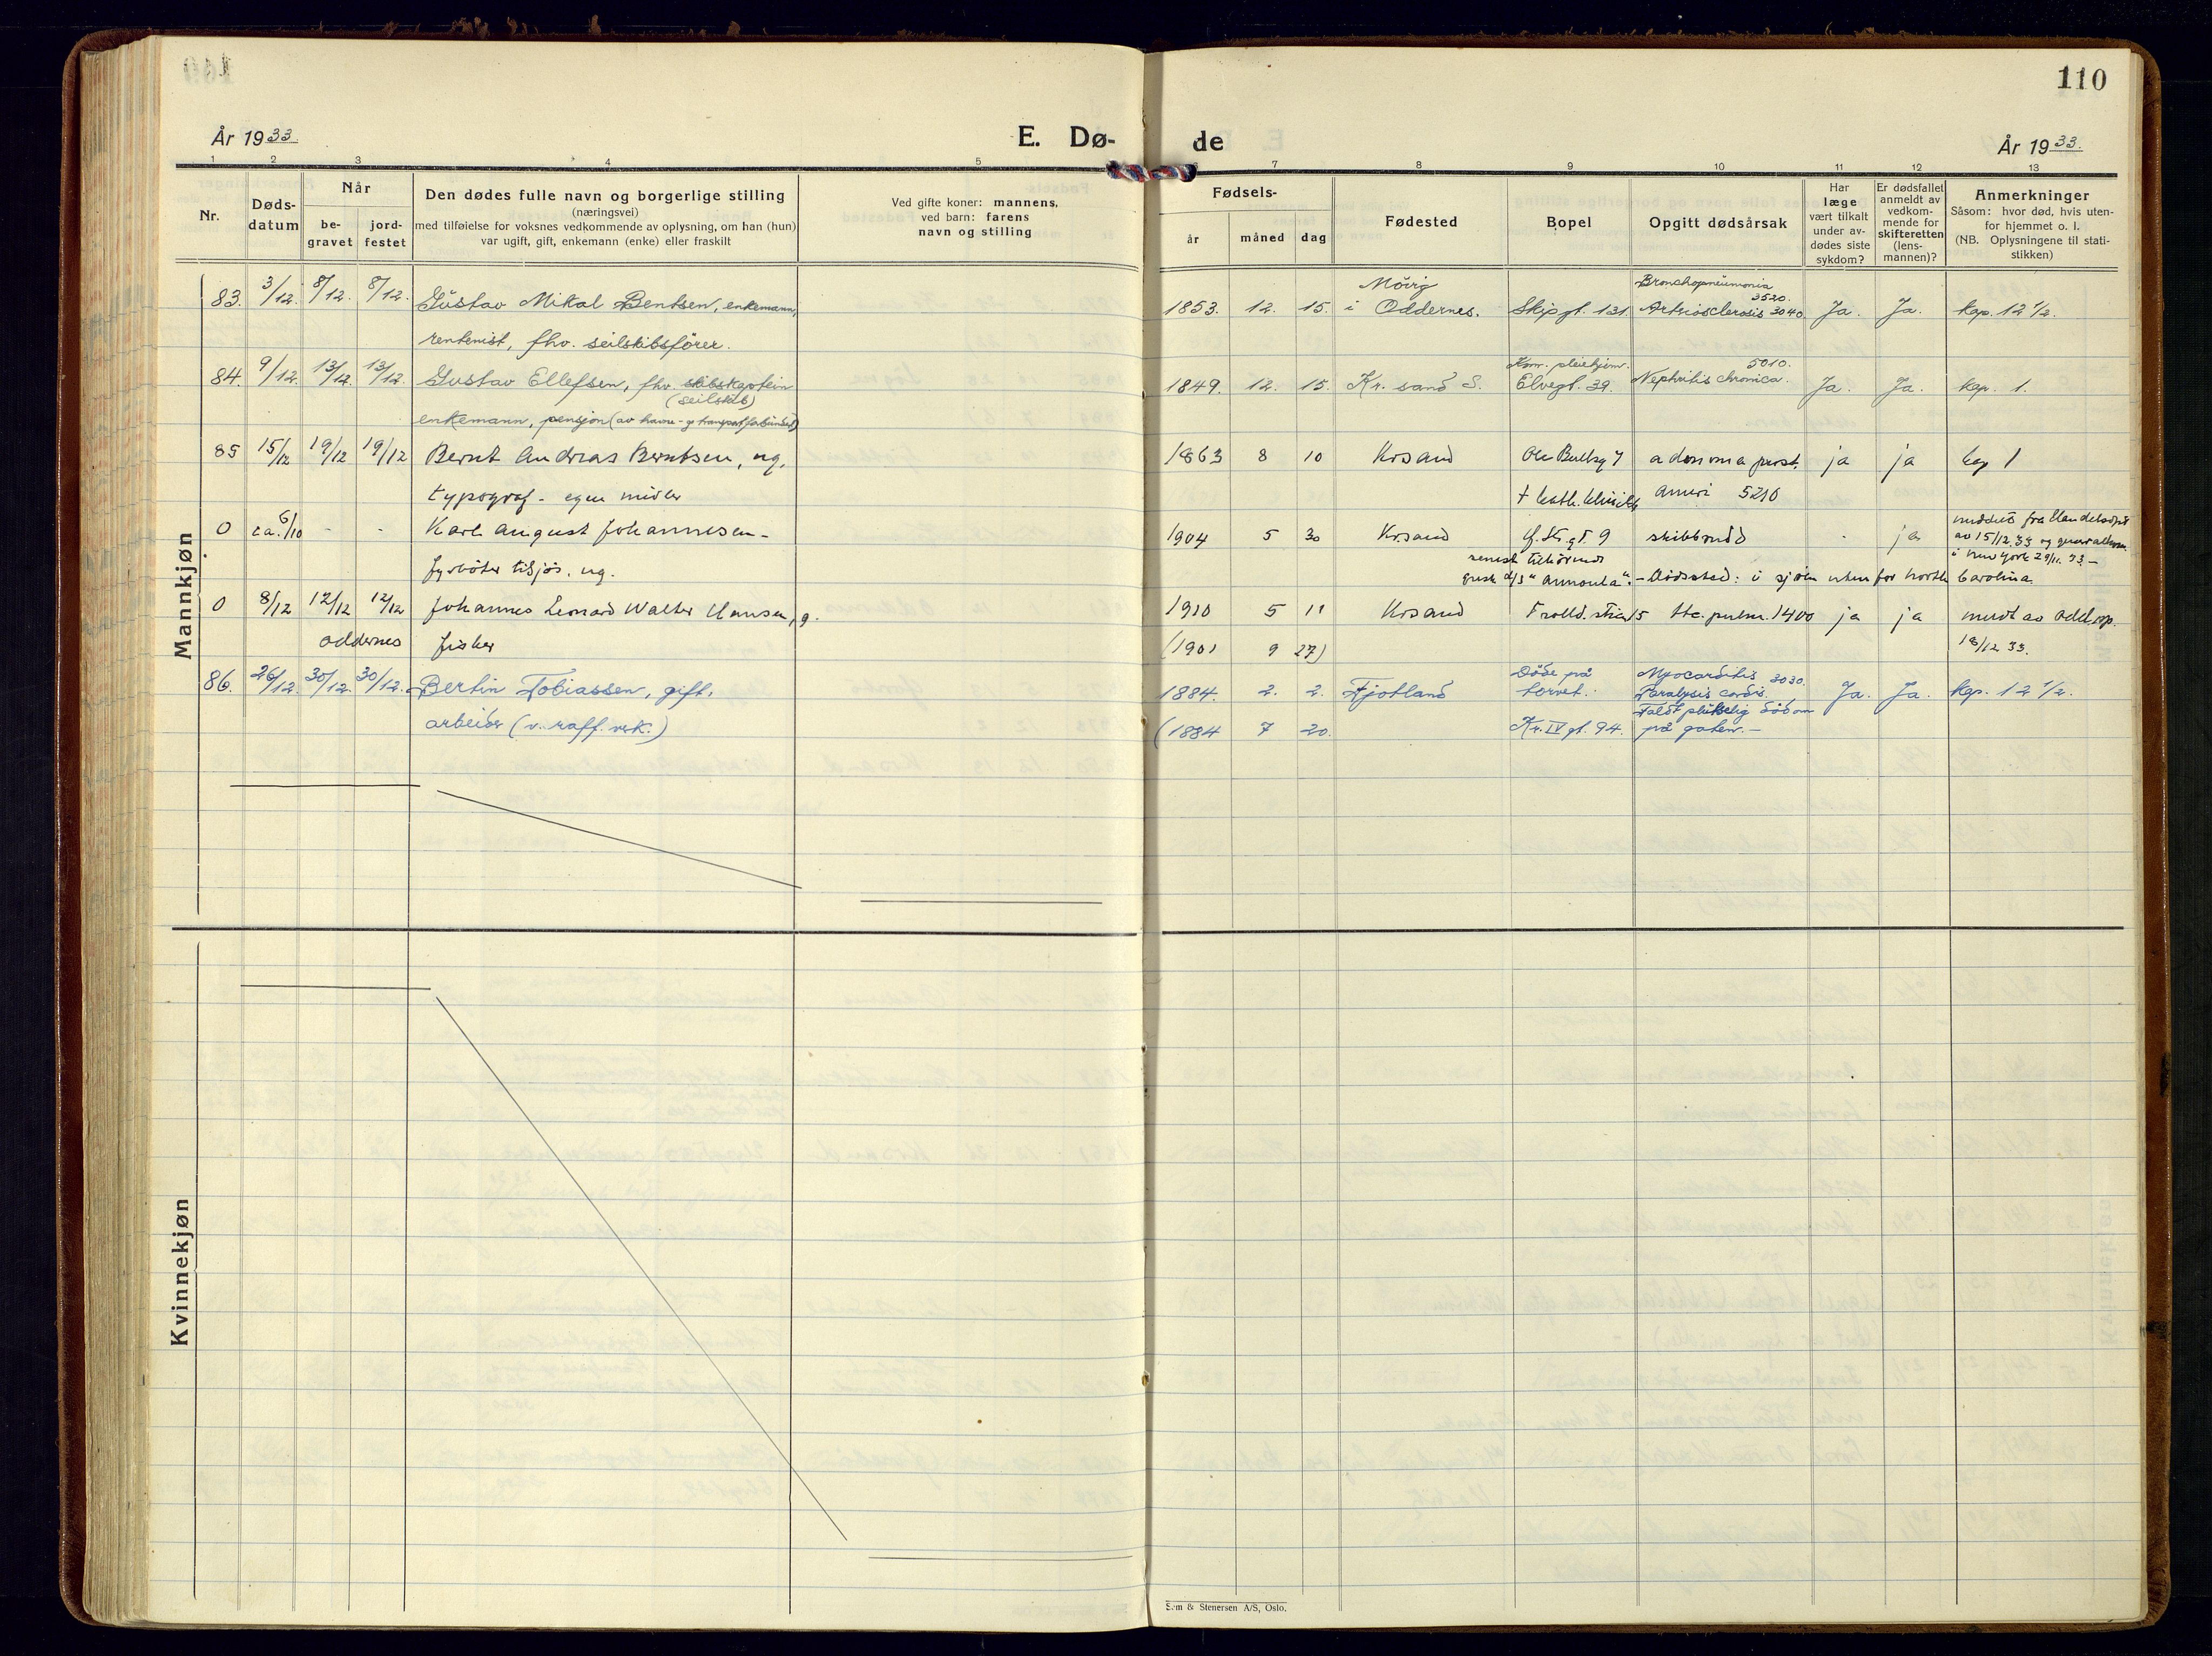 110
År 1933.
E. Dø-
de
År 1933.
1 2 3 4 5 6 7 8 9 10 11 12 13
Nr.
Døds-
datum
Når
be-
gravet
jord-
festet
Den dødes fulle navn og borgerlige stilling
(næringsvei)
med tilføielse for voksnes vedkommende av oplysning, om han (hun)
var ugift, gift, enkemann (enke) eller fraskilt
Ved gifte koner: mannens,
ved barn: farens
navn og stilling
Fødsels-
år måned dag
Fødested
Bopel
Opgitt dødsårsak
Har
læge
vært tilkalt
under av-
dødes siste
sykdom?
Er dødsfallet
anmeldt av
vedkom-
mende for
skifteretten
(lens-
mannen)?
Anmerkninger
Såsom: hvor død, hvis uten-
for hjemmet o. l.
(NB. Oplysningene til stati-
stikken)
Mannkjøn
83. 3/12. 8/12. 8/12. Gustav Mikal Bentsen, enkemann,
rentenist, fhv. seilskibsfører.
1853. 12. 15. Møvig
i Oddernes. Skipgt. 131 Bronchopneumonia
3520.
Arteriosclerosis 3040 Ja. Ja. kap. 12 1/2.
84. 9/12. 13/12. 13/12. Gustav Ellefsen, fhv. skibskaptein
(seilskib)
enkemann, pensjon (av havne- og transportforbundet)
1849. 12. 15. Kr. sand S. Kom. pleiehjem.
Elvegt. 39. 5010.
Nephritis chronica. Ja. Ja. kap. 1.
85 15/12 19/12 19/12 Bernt Andreas Berntsen, ug.
typograf - egne midler
1863 8 10 Krsand Ole Bullsg 7 adenoma prost. ja ja kap 1
† kath. klinikk 5210
0 ca. 6/10 - - Karl August Johannesen -
fyrbøter tilsjøs. ug.
1904 5 30 Krsand skibbrudd - ja
av 15/12.33
i New York 29/11.33.-
senest tilhørende
- Dødssted: i sjøen utenfor North Carolina
0 8/12 12/12 12/12 Johannes Leonard Walter Hansen, g.
Oddernes fisker
1910 5 11 Krsand tbc. pulm. 1400 ja ja
(1901 9 27) 18/12 33.
86. 26/12. 30/12. 30/12. Bertin Tobiassen, gift.
arbeider (v. raff. verk.)
1884. 2. 2. Fjotland Døde på
torvet. Myocarditis 3030.
Paralysis cordis. Ja. Ja. kap. 12 1/2.
Faldt plutselig død om
(1884 7 20. Kr. IV gt. 94. på gaten.-
Kvinnekjøn
Sem & Stenersen A/S, Oslo.